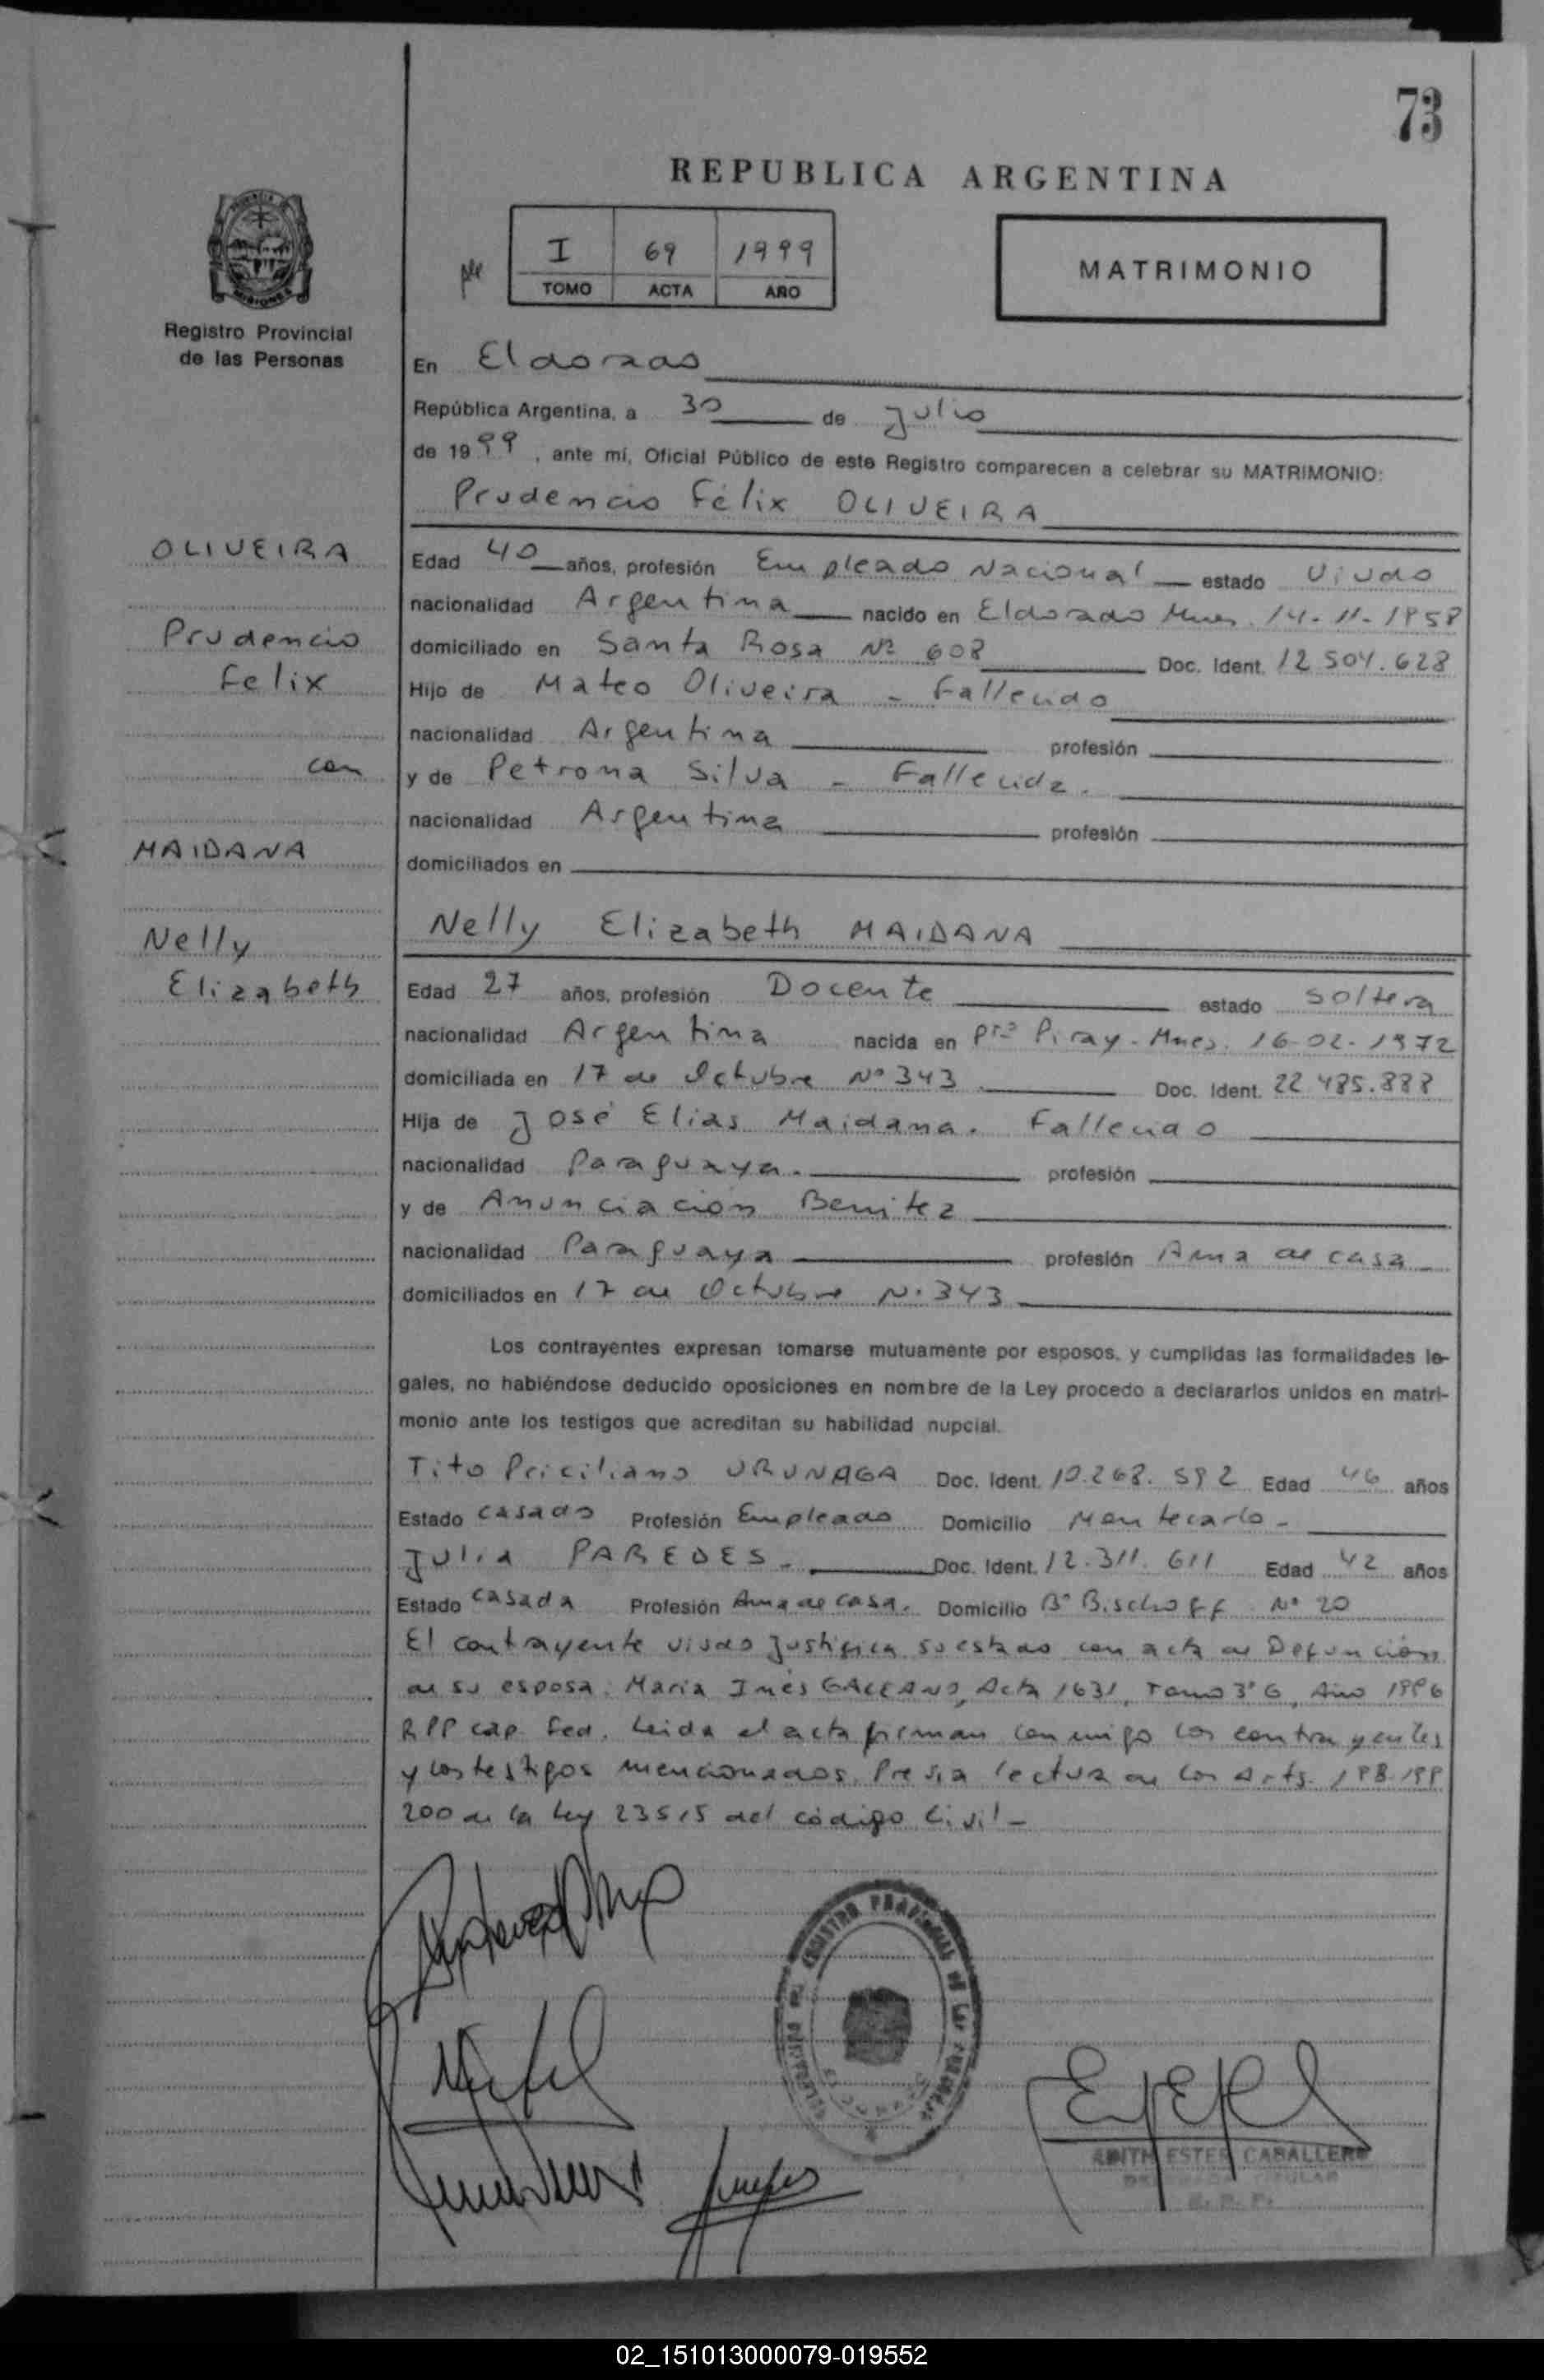 73
REPUBLICA ARGENTINA
I 69 1999
TOMO ACTA AÑO
MATRIMONIO
MISIONES
Registro Provincial
de las Personas
En Eldorado
República Argentina, a 30 de Julio
de 1999, ante mí, Oficial Público de este Registro comparecen a celebrar su MATRIMONIO:
Prudencio Félix OLIVEIRA
OLIVEIRA
Prudencio
Felix
con
MAIDANA
Nelly
Elizabeth
Edad 40 años, profesión Empleado Nacional estado Viudo
nacionalidad Argentina nacido en Eldorado Mnes. 14-11-1958
domiciliado en Santa Rosa Nº 608 Doc. Ident. 12.504.628
Hijo de Mateo Oliveira - Fallecido
nacionalidad Argentina profesión
y de Petrona Silva - Fallecida.
nacionalidad Argentina profesión
domiciliados en
Nelly Elizabeth MAIDANA
Edad 27 años, profesión Docente estado Soltera
nacionalidad Argentina nacida en Pto Piray - Mnes. 16-02-1972
domiciliada en 17 de Octubre Nº 343 Doc. Ident. 22.485.888
Hija de José Elias Maidana. Fallecido
nacionalidad Paraguaya. profesión
y de Anunciación Benitez
nacionalidad Paraguaya profesión Ama de casa
domiciliados en 17 de Octubre Nº 343
Los contrayentes expresan tomarse mutuamente por esposos, y cumplidas las formalidades le-
gales, no habiéndose deducido oposiciones en nombre de la Ley procedo a declararlos unidos en matri-
monio ante los testigos que acreditan su habilidad nupcial.
Tito Priciliano URUNAGA Doc. Ident. 10.268.592 Edad 46 años
Estado Casado Profesión Empleado Domicilio Montecarlo -
Julia PAREDES - Doc. Ident. 12.311.611 Edad 42 años
Estado Casada Profesión Ama de casa. Domicilio Bº Bischoff Nº 20
El contrayente viudo justifica su estado con acta de Defunción
de su esposa: Maria Inés GALEANO, Acta 1631, Tomo 3º G, Año 1996
RPP Cap. Fed. Leida el acta firman conmigo los contrayentes
y los testigos mencionados. Previa lectura de los Arts. 198-199
200 de la Ley 23515 del código Civil -
REGISTRO PROVINCIAL DE LAS PERSONAS
ELDORADO
EDITH ESTER CABALLERO
TITULAR
R. P. P.
02_151013000079-019552